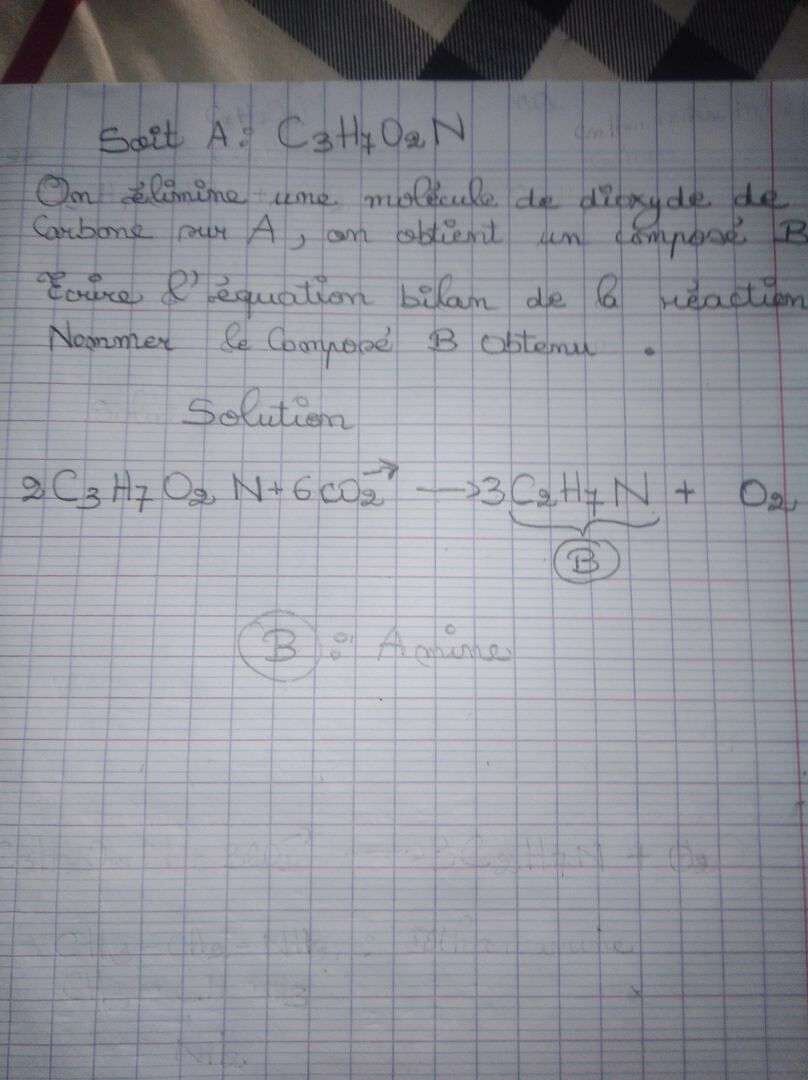 Soit A : C3H7O2N
On élimine une molécule de dioxyde de
Carbone sur A, on obtient un composé B
Ecrire l'équation bilan de la réaction
Nommer le Composé B obtenu .
Solution
2C3H7O2N+6CO2 → 3C2H7N + O2
B
B : Amine